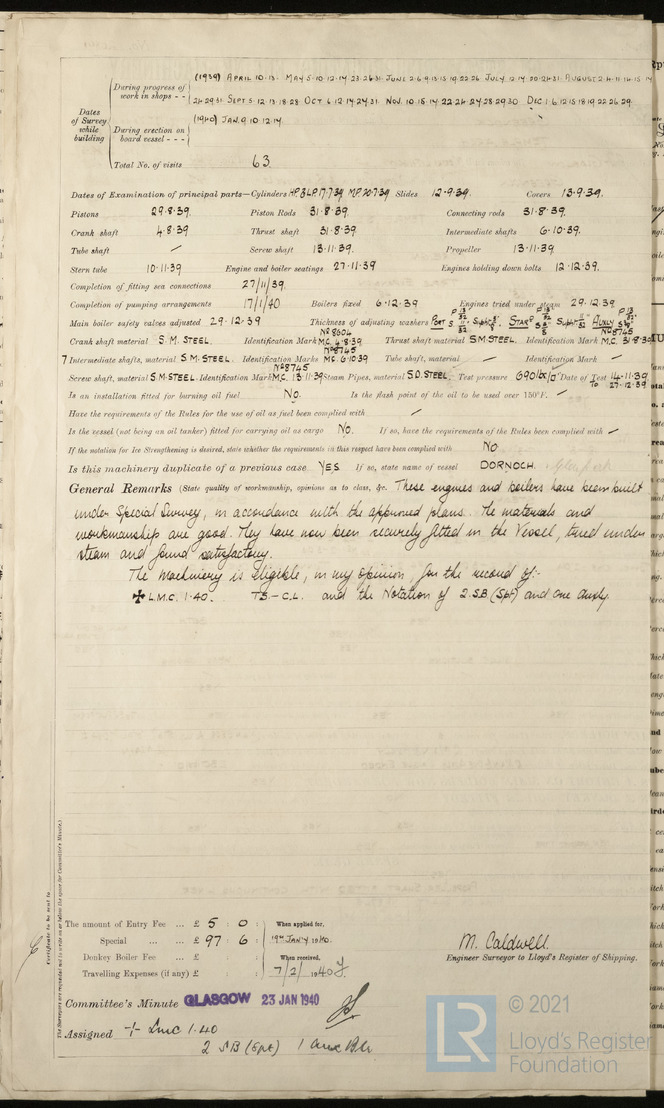 (1939) APRIL 10·13· MAY 5·10·12·14 23·26·31· JUNE 2·6·9·13·15 19·22·26 JULY 12·14 20·24·31 AUGUST 2·4·11·14·15
During progress of
work in shops - -
24·29·31 SEPT 5·12·13·18·28 OCT 6·12·14·24·31 NOV. 10·15·14 22·24·27·28·29·30 DEC. 1·6·12·15·18·19·22·26·29·
Dates
of Survey
while
building
During erection on
board vessel - - -
(1940) JAN. 9·10·12·14.
Total No. of visits 63
Dates of Examination of principal parts—Cylinders H.P.&L.P. 17·7·39 M.P. 20·7·39 Slides 12·9·39. Covers 13·9·39.
Pistons 29·8·39. Piston Rods 31·8·39. Connecting rods 31·8·39.
Crank shaft 4·8·39 Thrust shaft 31·8·39. Intermediate shafts 6·10·39.
Tube shaft Screw shaft 13·11·39. Propeller 13·11·39.
Stern tube 10·11·39 Engine and boiler seatings 27·11·39 Engines holding down bolts 12·12·39.
Completion of fitting sea connections 27/11/39.
Completion of pumping arrangements 17/1/40 Boilers fixed 6·12·39 Engines tried under steam 29·12·39
Main boiler safety valves adjusted 29·12·39 Thickness of adjusting washers PORT STARD AUXLY
Crank shaft material S.M. STEEL. Identification Mark Nº8604 M.C. 4·8·39 Thrust shaft material S.M STEEL. Identification Mark Nº8745 M.C. 31·8·39
7 Intermediate shafts, material S.M. STEEL. Identification Marks Nº8745 M.C. 6·10·39 Tube shaft, material Identification Mark
Screw shaft, material S.M. STEEL. Identification Mark Nº8745 M.C. 13·11·39 Steam Pipes, material S.D. STEEL. Test pressure 690 lbs/□" Date of Test 14·11·39 TO 27·12·39
Is an installation fitted for burning oil fuel No. Is the flash point of the oil to be used over 150°F.
Have the requirements of the Rules for the use of oil as fuel been complied with
Is the vessel (not being an oil tanker) fitted for carrying oil as cargo No. If so, have the requirements of the Rules been complied with
If the notation for Ice Strengthening is desired, state whether the requirements in this respect have been complied with No
Is this machinery duplicate of a previous case YES If so, state name of vessel DORNOCH.
General Remarks (State quality of workmanship, opinions as to class, &c. These engines and boilers have been built
under Special Survey, in accordance with the approved plans. The materials and
workmanship are good. They have now been securely fitted in the Vessel, tried under
steam and found satisfactory.
The Machinery is eligible, in my opinion for the record of:-
✠ L.M.C. 1·40. T.B.-C.L. and the Notation of 2.S.B (Spt) and one auxly.
Certificate to be sent to
The Surveyors are requested not to write on or below the space for Committee's Minute.
The amount of Entry Fee ... £ 5 : 0 : When applied for,
Special ... ... £ 97 : 6 : 19th JANY 1940.
Donkey Boiler Fee ... £ : : When received,
Travelling Expenses (if any) £ : : 7/2/ 1940
M. Caldwell.
Engineer Surveyor to Lloyd's Register of Shipping.
Committee's Minute GLASGOW 23 JAN 1940
Assigned + Lmc 1·40
2 SB (Spt) 1 aux Blr
© 2021
LR Lloyd's Register
Foundation